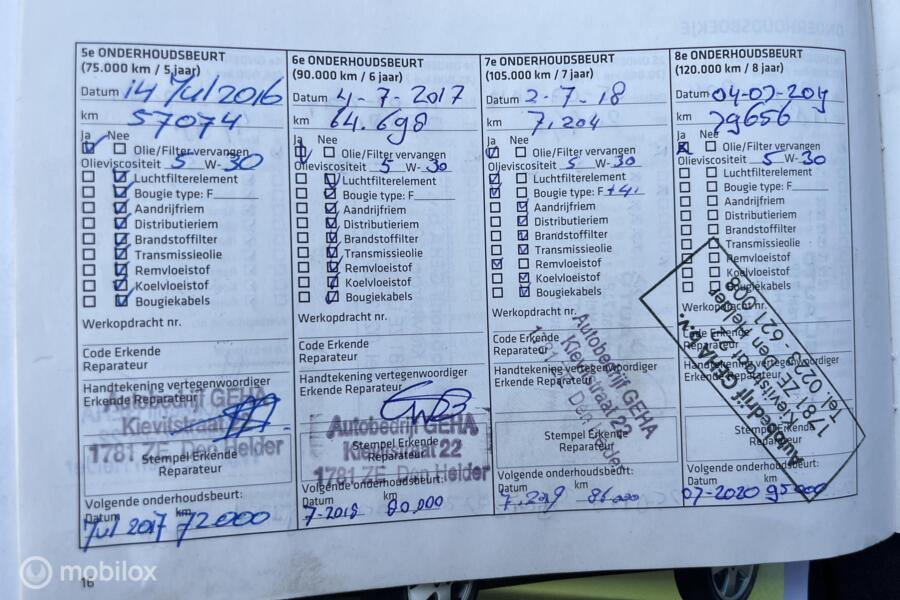 5e ONDERHOUDSBEURT
(75.000 km / 5 jaar)
Datum 14 Jul 2016
km 57074
Ja Nee
Olie/Filter vervangen
Olieviscositeit 5 W- 30
Luchtfilterelement
Bougie type: F
Aandrijfriem
Distributieriem
Brandstoffilter
Transmissieolie
Remvloeistof
Koelvloeistof
Bougiekabels
Werkopdracht nr.
Code Erkende
Reparateur
Handtekening vertegenwoordiger
Erkende Reparateur
Autobedrijf GEHA
Kievitstraat
1781 ZE Den Helder
Stempel Erkende
Reparateur
Volgende onderhoudsbeurt:
Datum km
Jul 2017 72.000
6e ONDERHOUDSBEURT
(90.000 km / 6 jaar)
Datum 4-7-2017
km 64.698
Ja Nee
Olie/Filter vervangen
Olieviscositeit 5 W- 30
Luchtfilterelement
Bougie type: F
Aandrijfriem
Distributieriem
Brandstoffilter
Transmissieolie
Remvloeistof
Koelvloeistof
Bougiekabels
Werkopdracht nr.
Code Erkende
Reparateur
Handtekening vertegenwoordiger
Erkende Reparateur
Autobedrijf GEHA
Kievitstraat 22
1781 ZE Den Helder
Stempel Erkende
Reparateur
Volgende onderhoudsbeurt:
Datum km
7-2018 80.000
7e ONDERHOUDSBEURT
(105.000 km / 7 jaar)
Datum 2-7-18
km 71204
Ja Nee
Olie/Filter vervangen
Olieviscositeit 5 W- 30
Luchtfilterelement
Bougie type: F
Aandrijfriem
Distributieriem
Brandstoffilter
Transmissieolie
Remvloeistof
Koelvloeistof
Bougiekabels
Werkopdracht nr.
Code Erkende
Reparateur
Handtekening vertegenwoordiger
Erkende Reparateur
Autobedrijf GEHA
Kievitstraat 22
1781 ZE Den Helder
Stempel Erkende
Reparateur
Volgende onderhoudsbeurt:
Datum km
7-2019 86.000
8e ONDERHOUDSBEURT
(120.000 km / 8 jaar)
Datum 04-07-2019
km 79656
Ja Nee
Olie/Filter vervangen
Olieviscositeit 5 W- 30
Luchtfilterelement
Bougie type: F
Aandrijfriem
Distributieriem
Brandstoffilter
Transmissieolie
Remvloeistof
Koelvloeistof
Bougiekabels
Werkopdracht nr.
Code Erkende
Reparateur
Handtekening vertegenwoordiger
Erkende Reparateur
Autobedrijf GEHA b.v.
1781 ZE Den Helder
Stempel Erkende
Reparateur
Volgende onderhoudsbeurt:
Datum km
07-2020 95000
16
mobilox